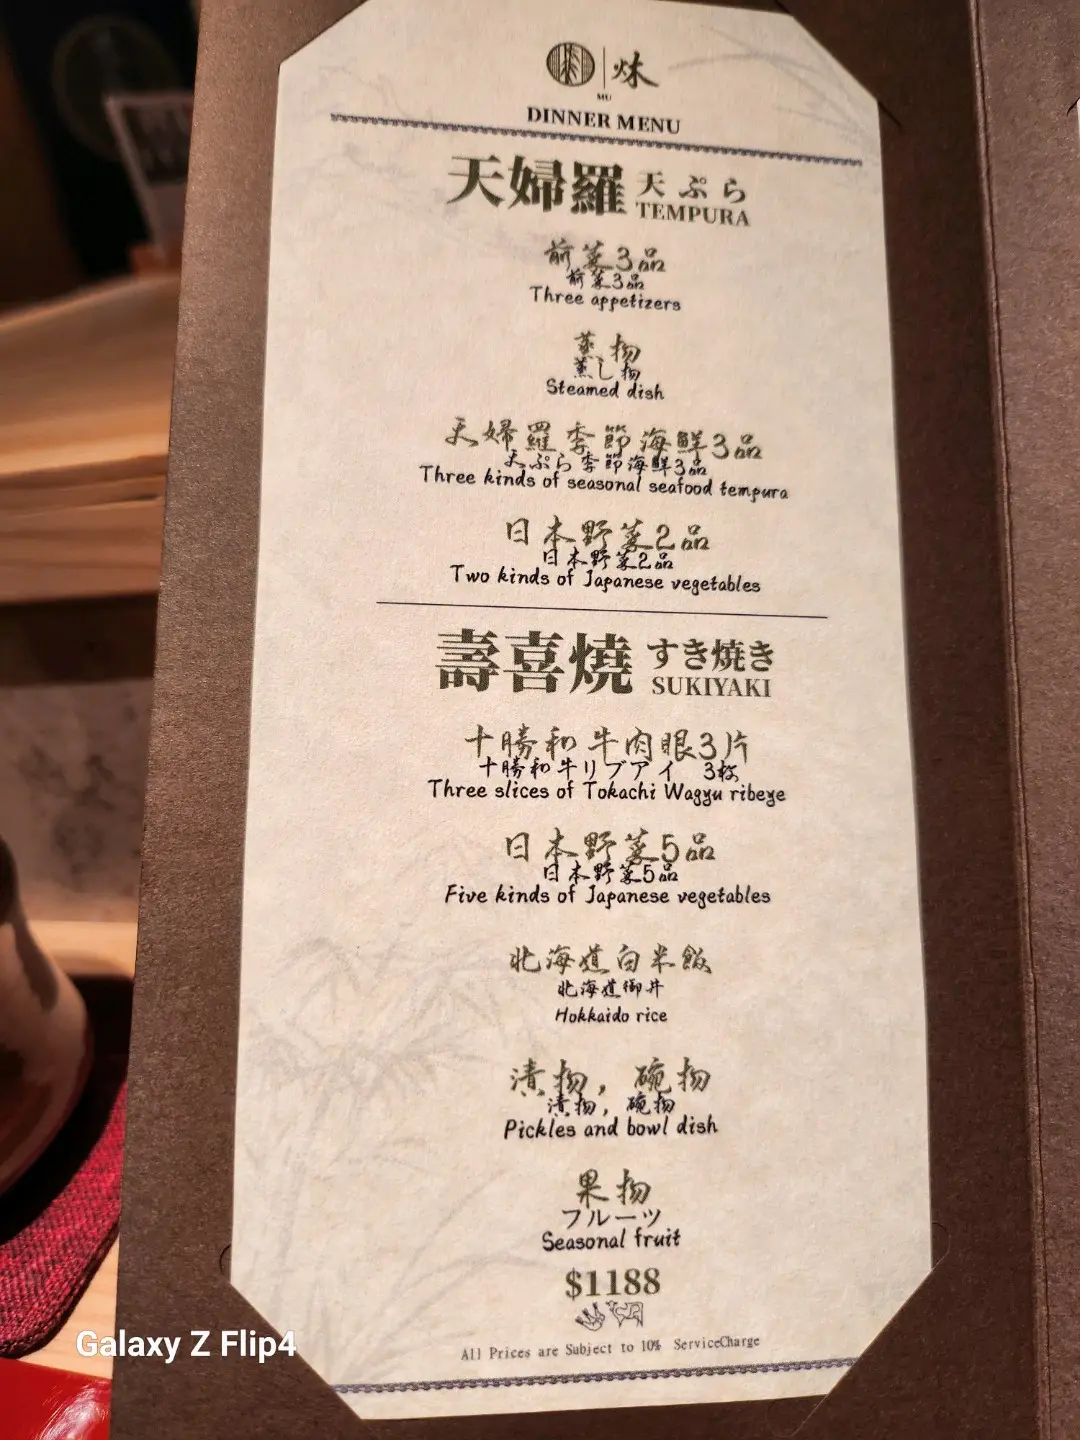 炑
MU
DINNER MENU
天婦羅 天ぷら
TEMPURA
前菜3品
前菜3品
Three appetizers
蒸物
蒸し物
Steamed dish
天婦羅季節海鮮3品
天ぷら季節海鮮3品
Three kinds of seasonal seafood tempura
日本野菜2品
日本野菜2品
Two kinds of Japanese vegetables
壽喜燒 すき焼き
SUKIYAKI
十勝和牛肉眼3片
十勝和牛リブアイ 3枚
Three slices of Tokachi Wagyu ribeye
日本野菜5品
日本野菜5品
Five kinds of Japanese vegetables
北海道白米飯
北海道御丼
Hokkaido rice
漬物，碗物
漬物，碗物
Pickles and bowl dish
果物
フルーツ
Seasonal fruit
$1188
All Prices are Subject to 10% ServiceCharge
Galaxy Z Flip4